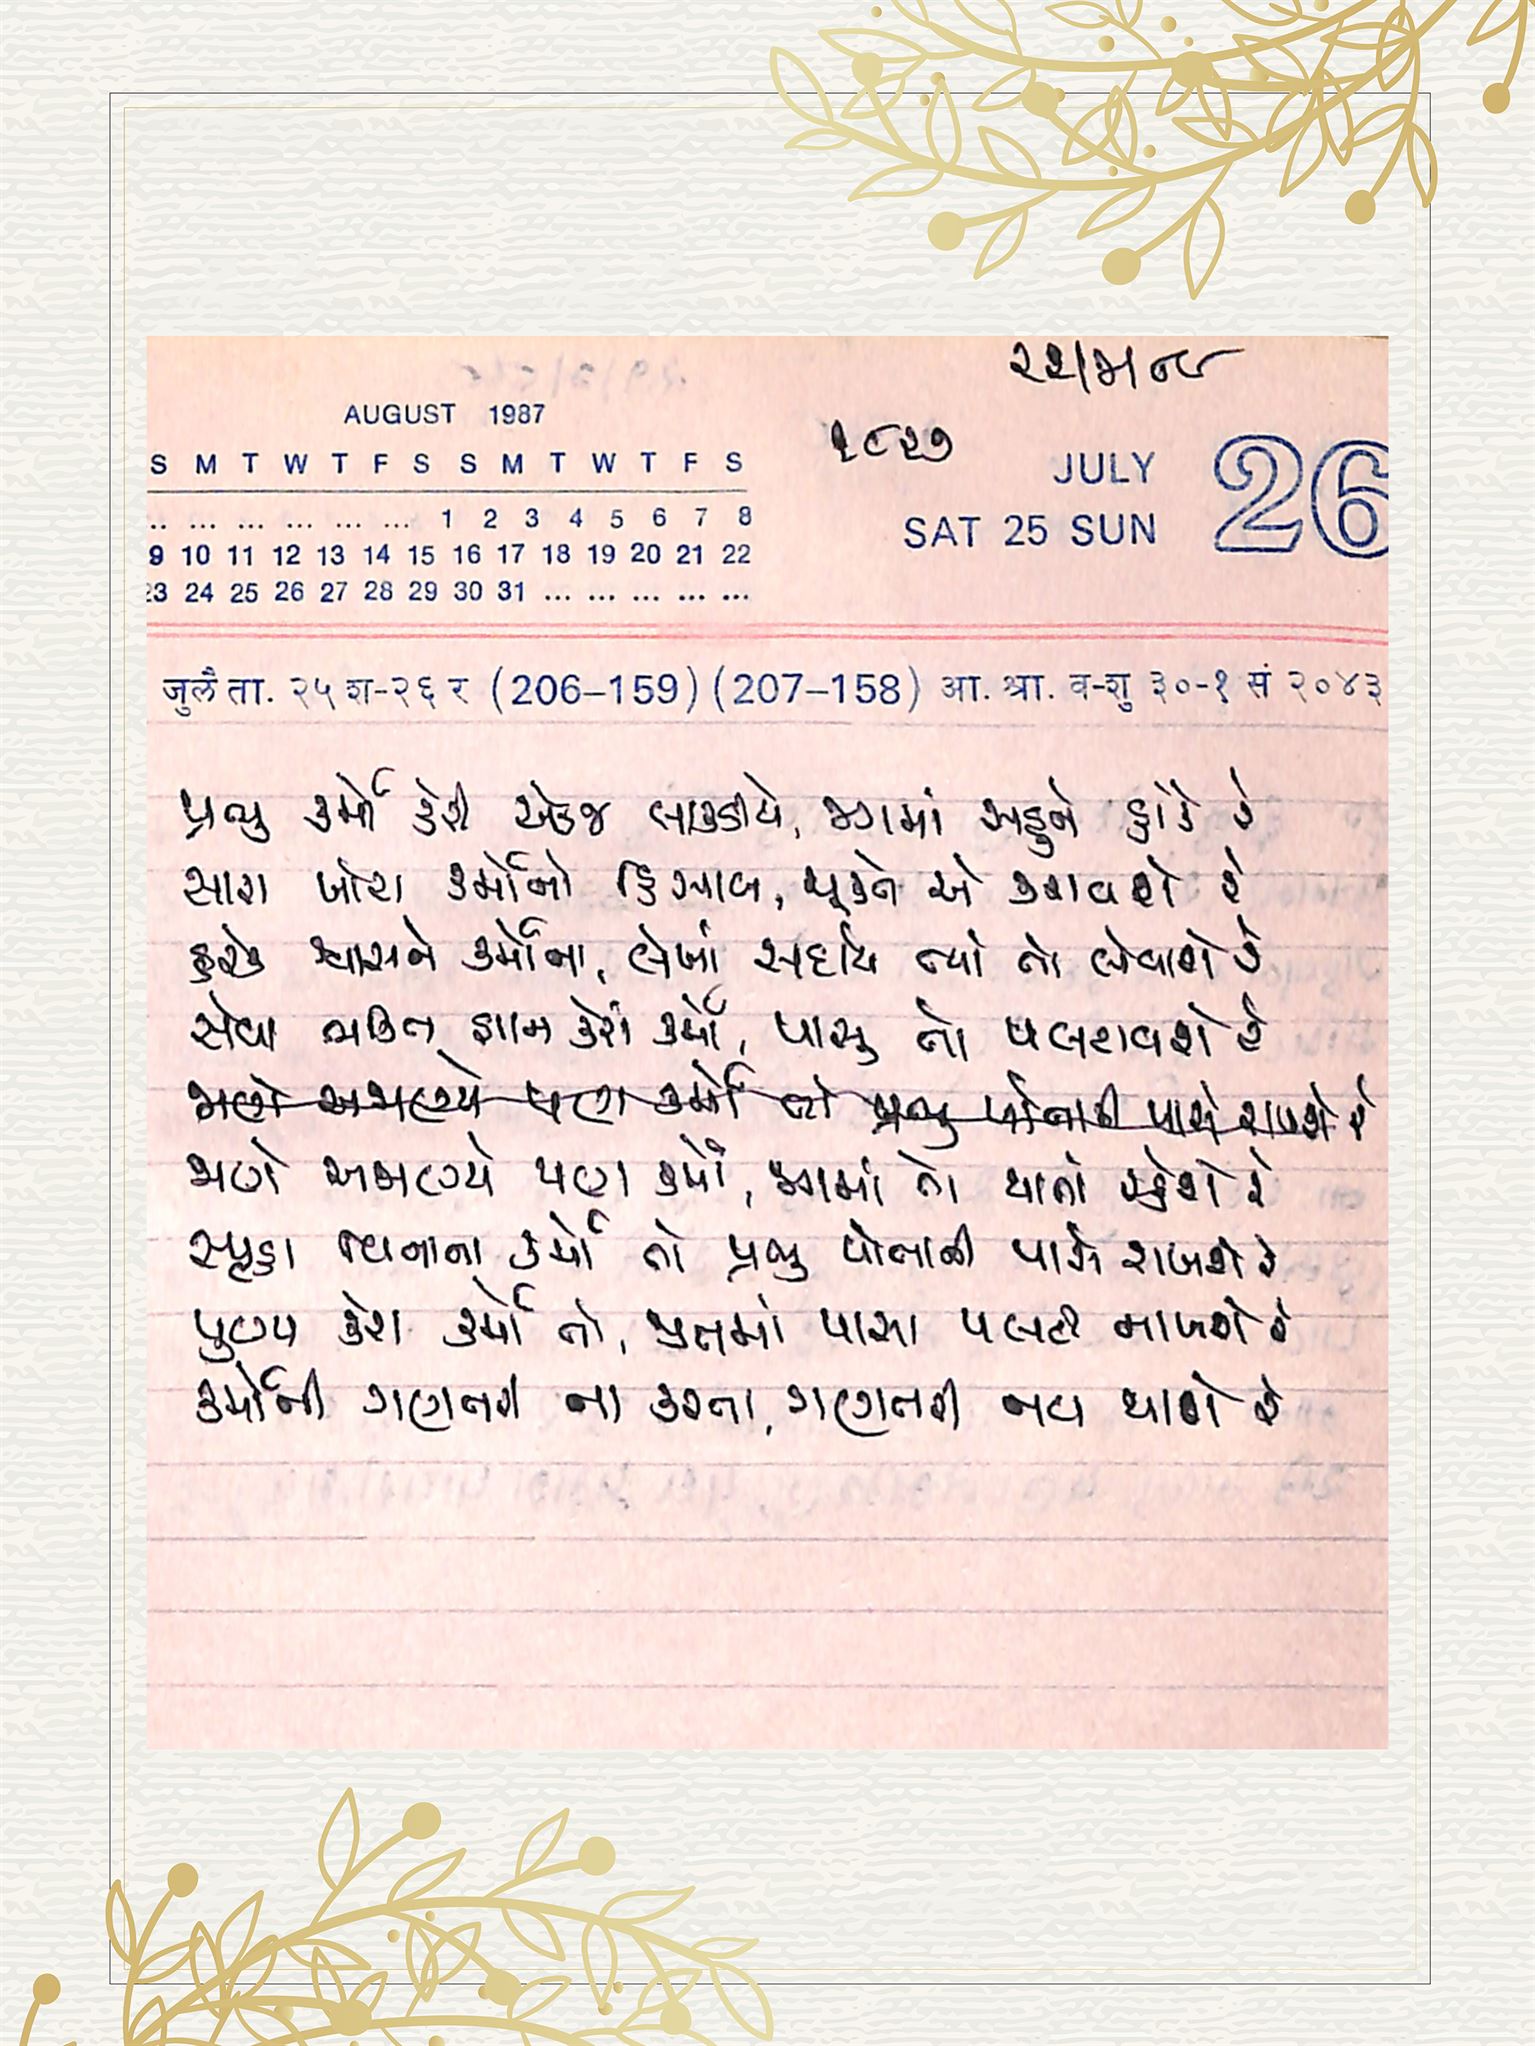 ૨૨/૭/૮૯
AUGUST 1987
૧૯૨૭
S M T W T F S S M T W T F S
JULY
SAT 25 SUN 26
.. ... ... ... ... ... 1 2 3 4 5 6 7 8
9 10 11 12 13 14 15 16 17 18 19 20 21 22
23 24 25 26 27 28 29 30 31 ... ... ... ... ...
जुलै ता. २५ श-२६ र (206–159) (207–158) आ. श्रा. व-शु ३०-१ सं २०४३
પ્રભુ કર્મો કેરી એકજ લાકડીયે, જગમાં સહુને હાંકે રે
સારા ખોટા કર્મોનો હિસાબ, ચૂકતે એ કરાવશે રે
હરેક શ્વાસને કર્મોના, લેખાં સદાય ત્યાં તો લેવાશે રે
સેવા ભક્તિ જ્ઞાન કેરાં કર્મો, પાસુ તો પલટાવશે રે
જાણે અજાણ્યે પણ કર્મો તો પ્રભુ પોતાની પાસે રાખશે રે
જાણે અજાણ્યે પણ કર્મો, જગમાં તો થાતાં રહેશે રે
સ્પૃહા વિનાના કર્મો તો પ્રભુ પોતાની પાસે રાખશે રે
પુણ્ય કેરા કર્મો તો, જીતમાં પાસા પલટી નાખશે રે
કર્મોની ગણતરી ના કરતા, ગણતરી નવ થાશે રે